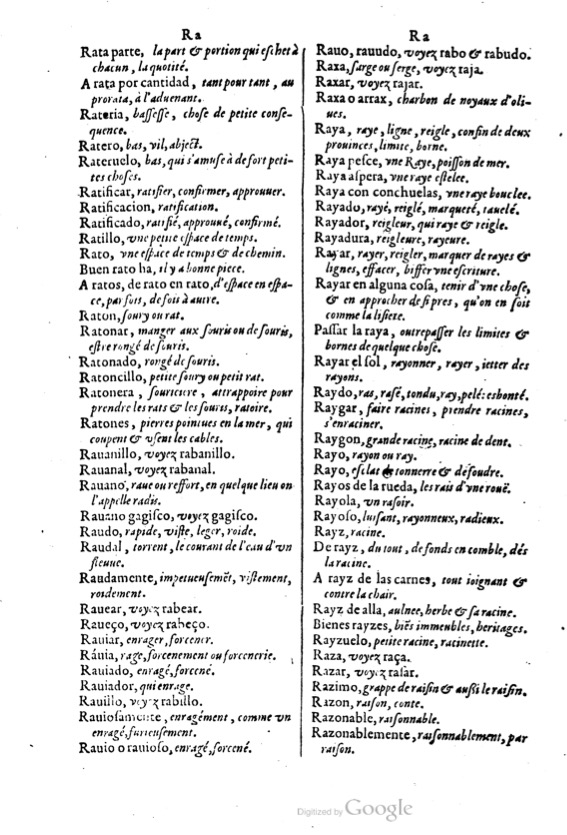 Ra
Rata parte, la part & portion qui eschet à
chacun, la quotité.
A rata por cantidad, tant pour tant, au
prorata, à l'aduenant.
Rateria, bassesse, chose de petite conse-
quence.
Ratero, bas, vil, abject.
Rateruelo, bas, qui s'amuse à de fort peti-
tes choses.
Ratificar, ratifier, confirmer, approuuer.
Ratificacion, ratification.
Ratificado, ratifié, approuué, confirmé.
Ratillo, vne petite espace de temps.
Rato, vne espace de temps & de chemin.
Buen rato ha, il y a bonne piece.
A ratos, de rato en rato, d'espace en espa-
ce, par fois, de fois à autre.
Raton, soury ou rat.
Ratonar, manger aux souris ou de souris,
estre rongé de souris.
Ratonado, rongé de souris.
Ratoncillo, petite soury ou petit rat.
Ratonera, souriciere, attrappoire pour
prendre les rats & les souris, ratoire.
Ratones, pierres pointues en la mer, qui
coupent & vsent les cables.
Rauanillo, voyez rabanillo.
Rauanal, voyez rabanal.
Rauano, raue ou reffort, en quelque lieu on
l'appelle radis.
Rauano gagisco, voyez gagisco.
Raudo, rapide, viste, leger, roide.
Raudal, torrent, le courant de l'eau d'vn
fleuue.
Raudamente, impetueusemēt, vistement,
roidement.
Rauear, voyez rabear.
Raueço, voyez rabeço.
Rauiar, enrager, forcener.
Ráuia, rage, forcenement ou forcenerie.
Rauiado, enragé, forcené.
Rauiador, qui enrage.
Rauillo, voyez rabillo.
Rauiosamente, enragément, comme vn
enragé, furieusement.
Rauio o rauioso, enragé, forcené.
Ra
Rauo, rauudo, voyez rabo & rabudo.
Raxa, sarge ou serge, voyez raja.
Raxar, voyez rajar.
Raxa o arrax, charbon de noyaux d'oli-
ues.
Raya, raye, ligne, reigle, confin de deux
prouinces, limite, borne.
Raya pesce, vne Raye, poisson de mer.
Raya aspera, vne raye estelee.
Raya con conchuelas, vne raye bouclee.
Rayado, rayé, reiglé, marqueté, tauelé.
Rayador, reigleur, qui raye & reigle.
Rayadura, reigleure, rayeure.
Rayar, rayer, reigler, marquer de rayes &
lignes, effacer, biffer vne escriture.
Rayar en alguna cosa, tenir d'vne chose,
& en approcher de si pres, qu'on en soit
comme la lisiere.
Passar la raya, outrepasser les limites &
bornes de quelque chose.
Rayar el sol, rayonner, rayer, ietter des
rayons.
Raydo, ras, rasé, tondu, ray, pelé: eshonté.
Raygar, faire racines, prendre racines,
s'enraciner.
Raygon, grande racine, racine de dent.
Rayo, rayon ou ray.
Rayo, esclat de tonnerre & de foudre.
Rayos de la rueda, les rais d'vne rouë.
Rayola, vn rasoir.
Rayoso, luisant, rayonneux, radieux.
Rayz, racine.
De rayz, du tout, de fonds en comble, dés
la racine.
A rayz de las carnes, tout ioignant &
contre la chair.
Rayz de alla, aulnee, herbe & sa racine.
Bienes rayzes, biēs immeubles, heritages.
Rayzuelo, petite racine, racinette.
Raza, voyez raça.
Razar, voyez rasar.
Razimo, grappe de raisin & aussi le raisin.
Razon, raison, conte.
Razonable, raisonnable.
Razonablemente, raisonnablement, par
raison.
Digitized by Google